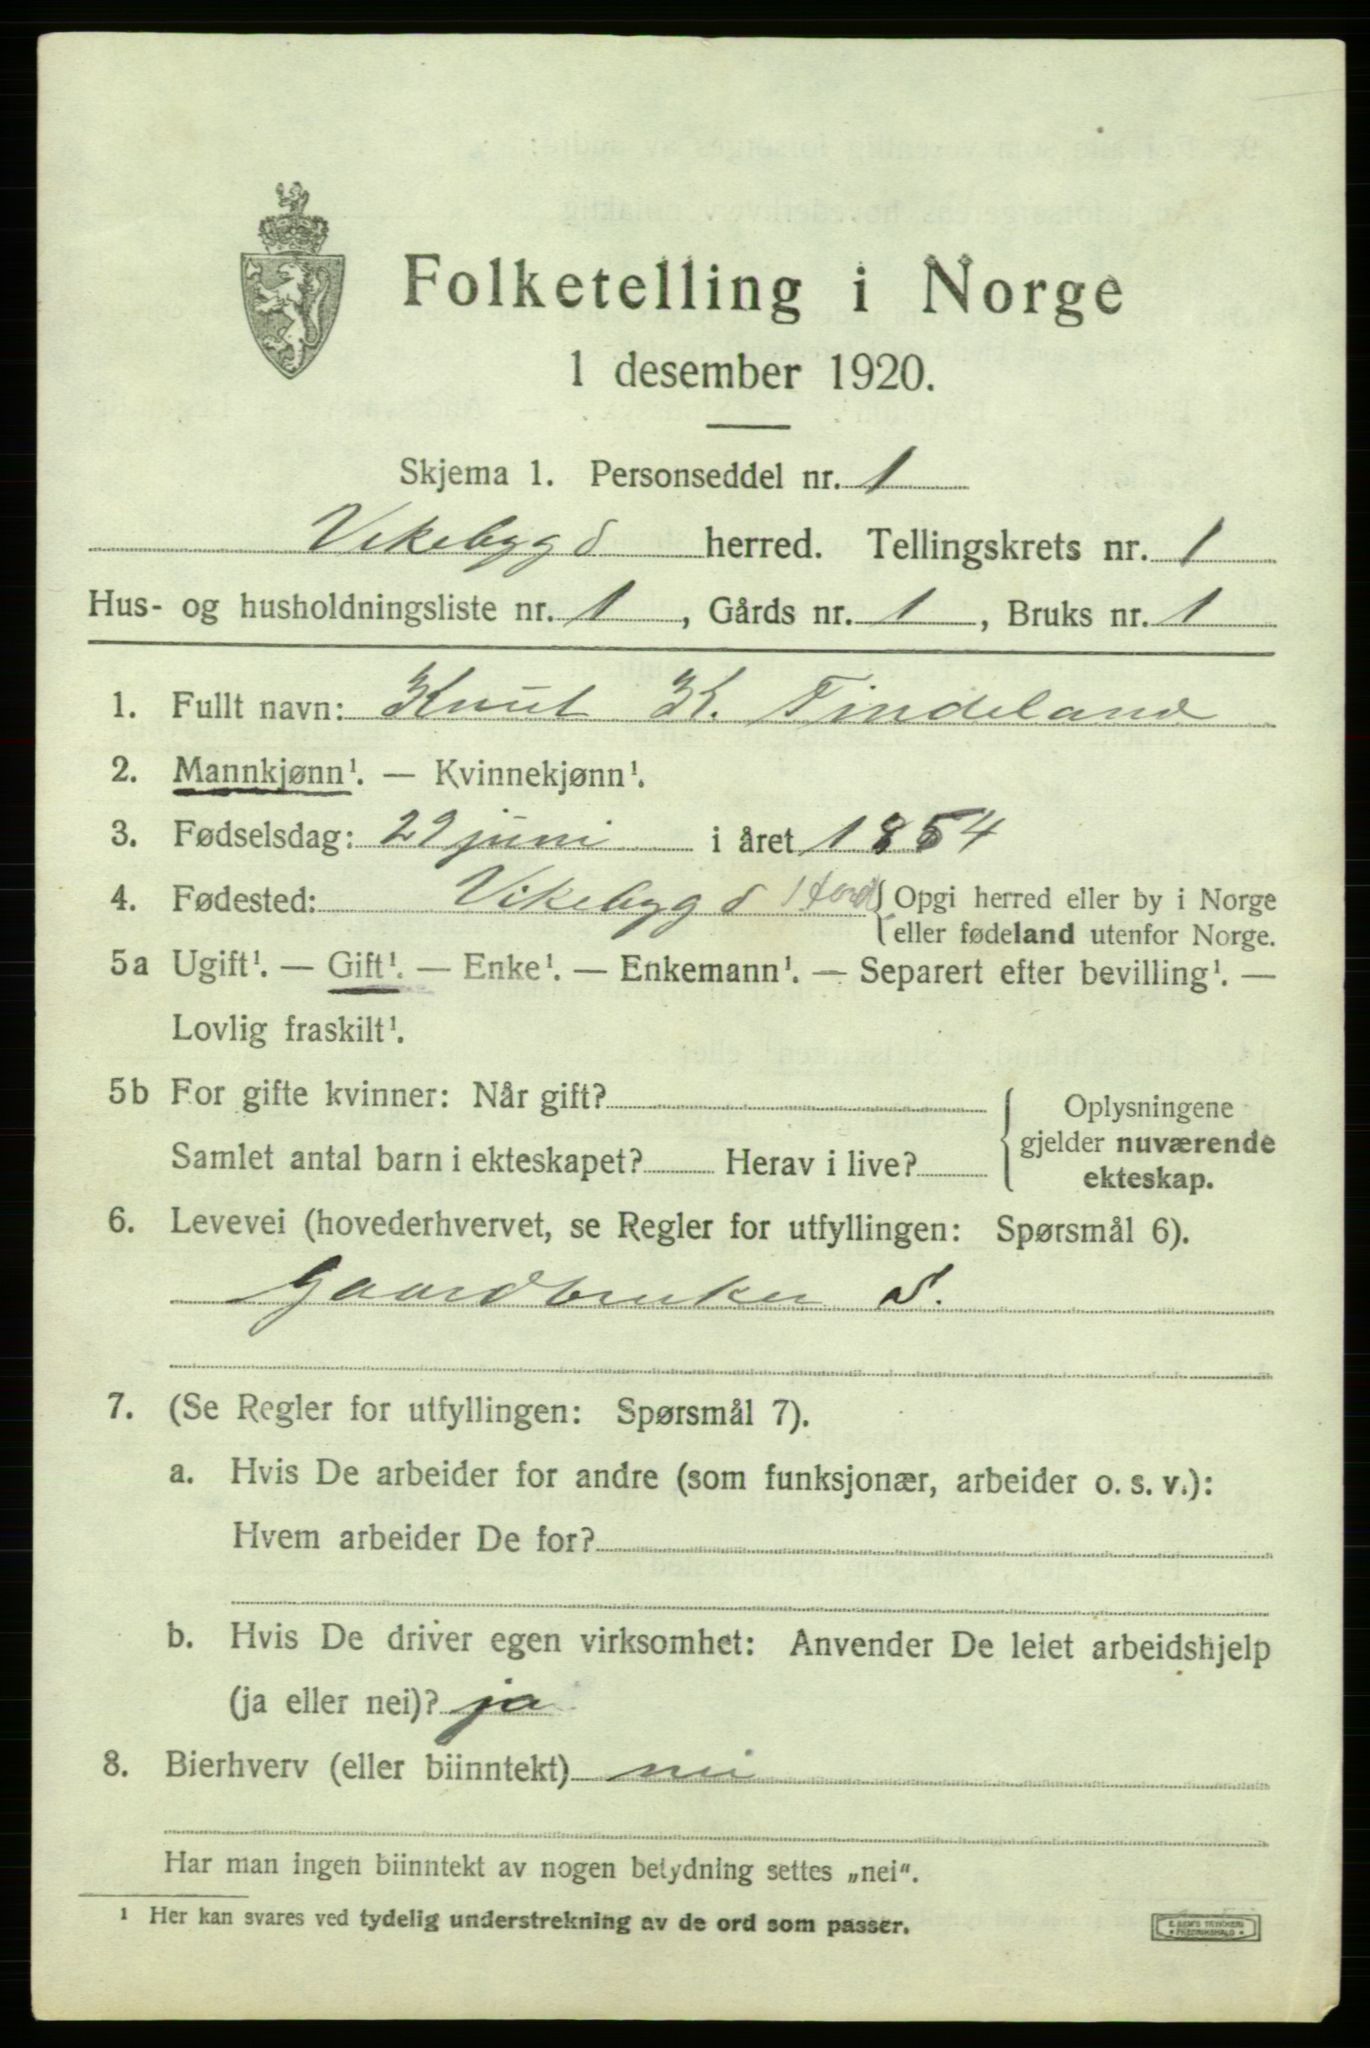 Folketelling i Norge
1 desember 1920.
Skjema 1. Personseddel nr. 1
Vikebygd herred. Tellingskrets nr. 1
Hus- og husholdningsliste nr. 1, Gårds nr. 1, Bruks nr. 1
1. Fullt navn: Knut K. Tindeland
2. Mannkjønn¹. — Kvinnekjønn¹.
3. Fødselsdag: 29 juni i året 1854
4. Fødested: Vikebygd Hord { Opgi herred eller by i Norge
eller fødeland utenfor Norge.
5a Ugift¹. — Gift¹. — Enke¹. — Enkemann¹. — Separert efter bevilling¹. —
Lovlig fraskilt¹.
5b For gifte kvinner: Når gift?
Samlet antal barn i ekteskapet? Herav i live?
{ Oplysningene
gjelder nuværende
ekteskap.
6. Levevei (hovederhvervet, se Regler for utfyllingen: Spørsmål 6).
Gaardbruker S.
7. (Se Regler for utfyllingen: Spørsmål 7).
a. Hvis De arbeider for andre (som funksjonær, arbeider o. s. v.):
Hvem arbeider De for?
b. Hvis De driver egen virksomhet: Anvender De leiet arbeidshjelp
(ja eller nei)? ja
8. Bierhverv (eller biinntekt) nei
Har man ingen biinntekt av nogen betydning settes „nei“.
¹ Her kan svares ved tydelig understrekning av de ord som passer.
E. SEM'S TRYKKERI
FREDRIKSHALD